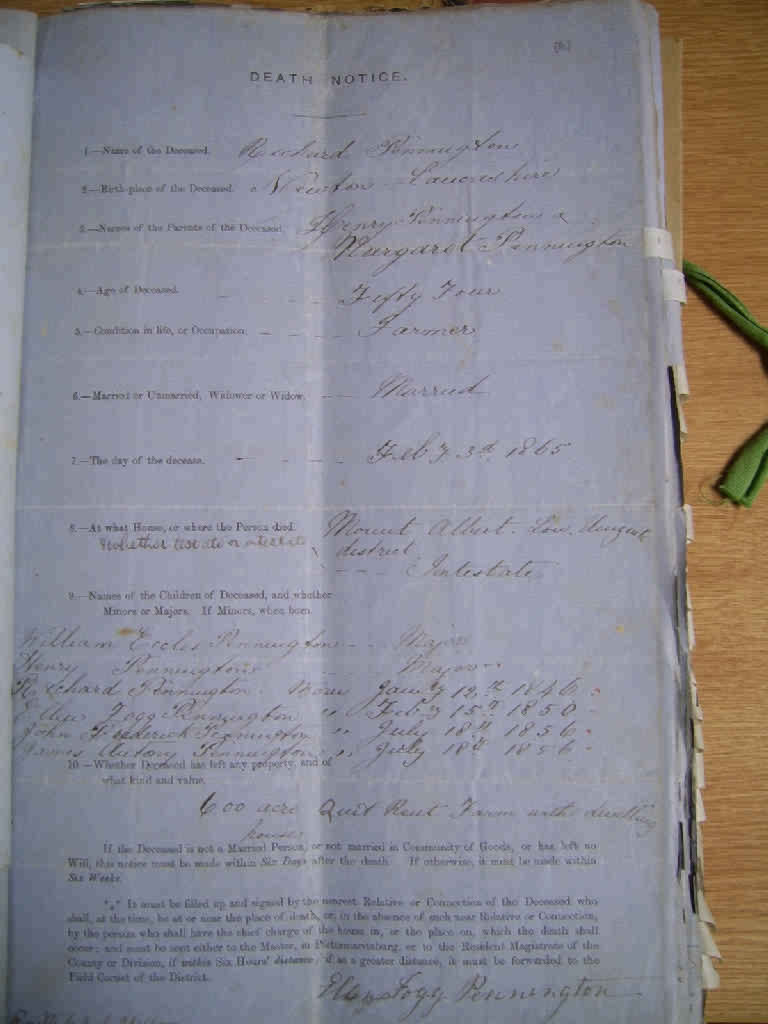 DEATH NOTICE.
1.—Name of the Deceased. Richard Pennington
2.—Birth-place of the Deceased. Newton Lancashire
3.—Names of the Parents of the Deceased. Henry Pennington &
Margaret Pennington
4.—Age of Deceased. Fifty Four
5.—Condition in life, or Occupation. Farmer
6.—Married or Unmarried, Widower or Widow. Married
7.—The day of the decease. Feby 3d 1865
8.—At what House, or where the Person died. Mount Albert. Low. Umgeni
Whether testate or intestate district
Intestate
9.—Names of the Children of Deceased, and whether
Minors or Majors. If Minors, when born.
William Eccles Pennington Major
Henry Pennington Major
Richard Pennington Born Jany 12th 1846
Ellen Fogg Pennington " Feby 15th 1850
John Frederick Pennington " July 18th 1856
James Antony Pennington " July 18th 1856
10.—Whether Deceased has left any property, and of
what kind and value.
600 acre Quit Rent Farm with dwelling
house
If the Deceased is not a Married Person, or not married in Community of Goods, or has left no
Will, this notice must be made within Six Days after the death. If otherwise, it must be made within
Six Weeks.
*** It must be filled up and signed by the nearest Relative or Connection of the Deceased who
shall, at the time, be at or near the place of death, or, in the absence of such near Relative or Connection,
by the person who shall have the chief charge of the house in, or the place on, which the death shall
occur; and must be sent either to the Master, in Pietermaritzburg, or to the Resident Magistrate of the
County or Division, if within Six Hours' distance; if at a greater distance, it must be forwarded to the
Field Cornet of the District.
Ellen Fogg Pennington